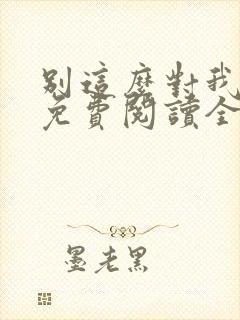 別這麼對我
免費閱讀全
墨老黑